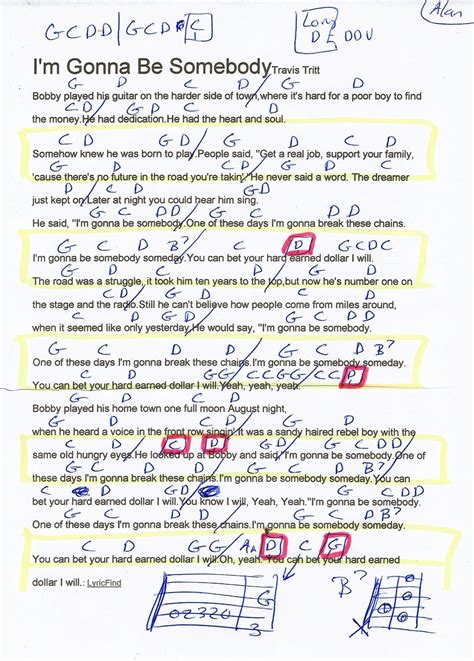 G C D D / G C D C
Long
D E D O U
Alan
I'm Gonna Be Somebody Travis Tritt
G D / G C D
Bobby played his guitar on the harder side of town,where it's hard for a poor boy to find
C D / G D C D
the money.He had dedication.He had the heart and soul.
C D G D / G D
Somehow knew he was born to play.People said, "Get a real job, support your family,
G C D C
'cause there's no future in the road you're takin'."He never said a word. The dreamer
D C D G D
just kept on.Later at night you could hear him sing.
G C D D
He said, "I'm gonna be somebody.One of these days I'm gonna break these chains.
G C D B7 C D G C D C
I'm gonna be somebody someday.You can bet your hard earned dollar I will.
The road was a struggle, it took him ten years to the top,but now he's number one on
the stage and the radio.Still he can't believe how people come from miles around,
when it seemed like only yesterday.He would say, "I'm gonna be somebody.
G C D G C D B7
One of these days I'm gonna break these chains.I'm gonna be somebody someday.
C D G G / C C G G / C C D
You can bet your hard earned dollar I will.Yeah, yeah, yeah.
Bobby played his home town one full moon August night,
when he heard a voice in the front row singin'.It was a sandy haired rebel boy with the
D C D G C D D
same old hungry eyes.He looked up at Bobby and said,"I'm gonna be somebody.One of
G C D G C D B7
these days I'm gonna break these chains.I'm gonna be somebody someday.You can
C D G D G C D D
bet your hard earned dollar I will.You know I will, Yeah, Yeah."I'm gonna be somebody.
G C D G C D B7
One of these days I'm gonna break these chains.I'm gonna be somebody someday.
C D G G / A A D C G
You can bet your hard earned dollar I will.Oh, yeah. You can bet your hard earned
dollar I will.: LyricFind
G
02320
3
B7